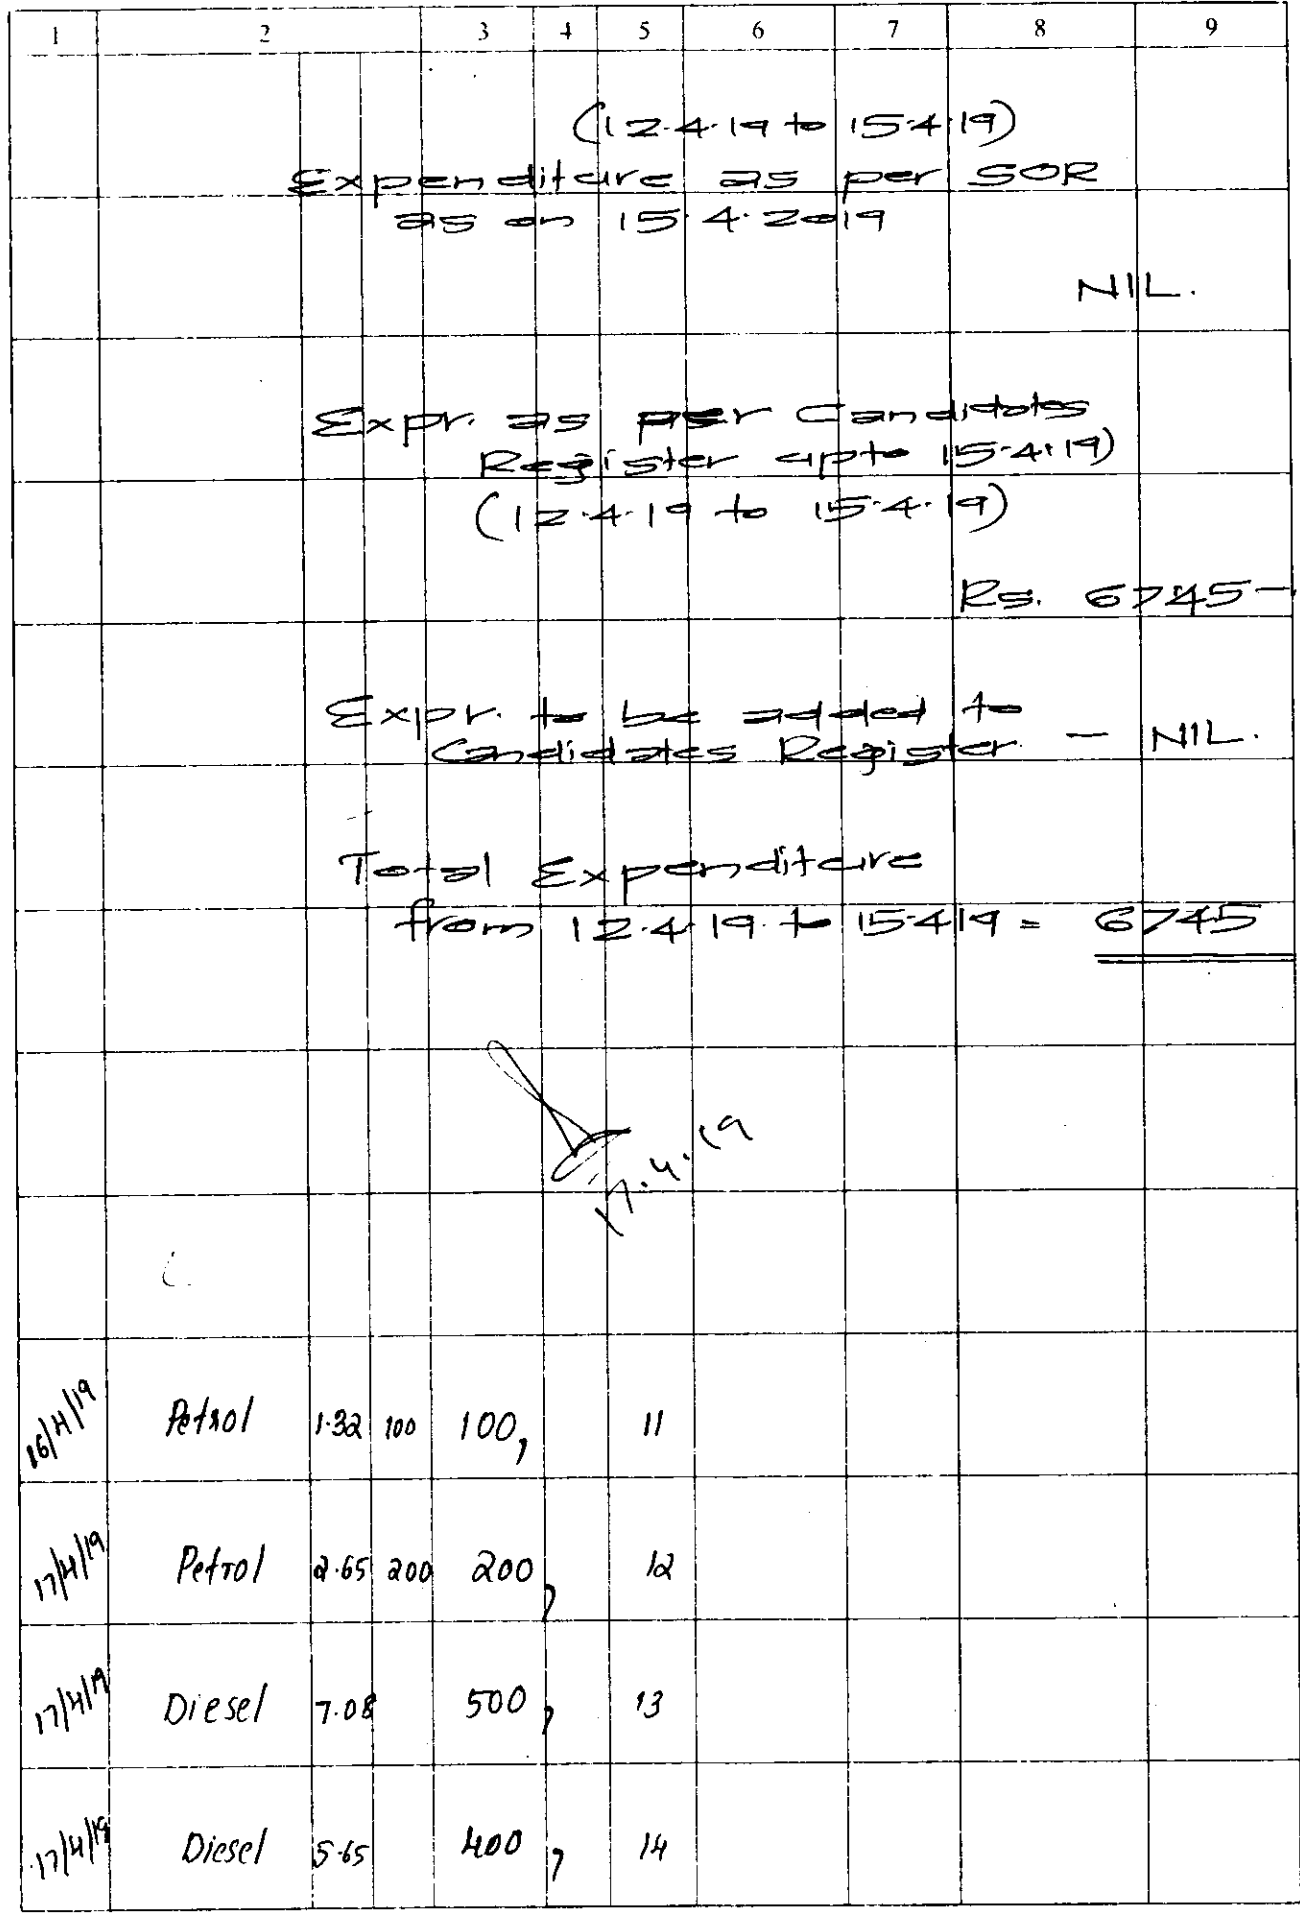 1 2 3 4 5 6 7 8 9
(12.4.19 to 15.4.19)
Expenditure as per SOR
as on 15.4.2019
NIL.
Expr. as per Candidates
Register upto 15.4.19)
(12.4.19 to 15.4.19)
Rs. 6745-
Expr. to be added to
Candidates Register - NIL.
Total Expenditure
from 12.4.19. to 15.4.19 = 6745
17.4.19
16/4/19 Petrol 1.32 100 100, 11
17/4/19 Petrol 2.65 200 200, 12
17/4/19 Diesel 7.08 500, 13
17/4/19 Diesel 5.65 400, 14